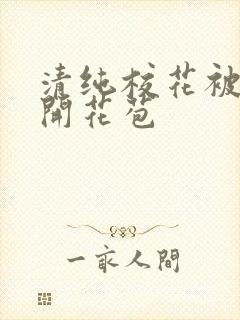 清纯校花被
開花苞
一㐬人間